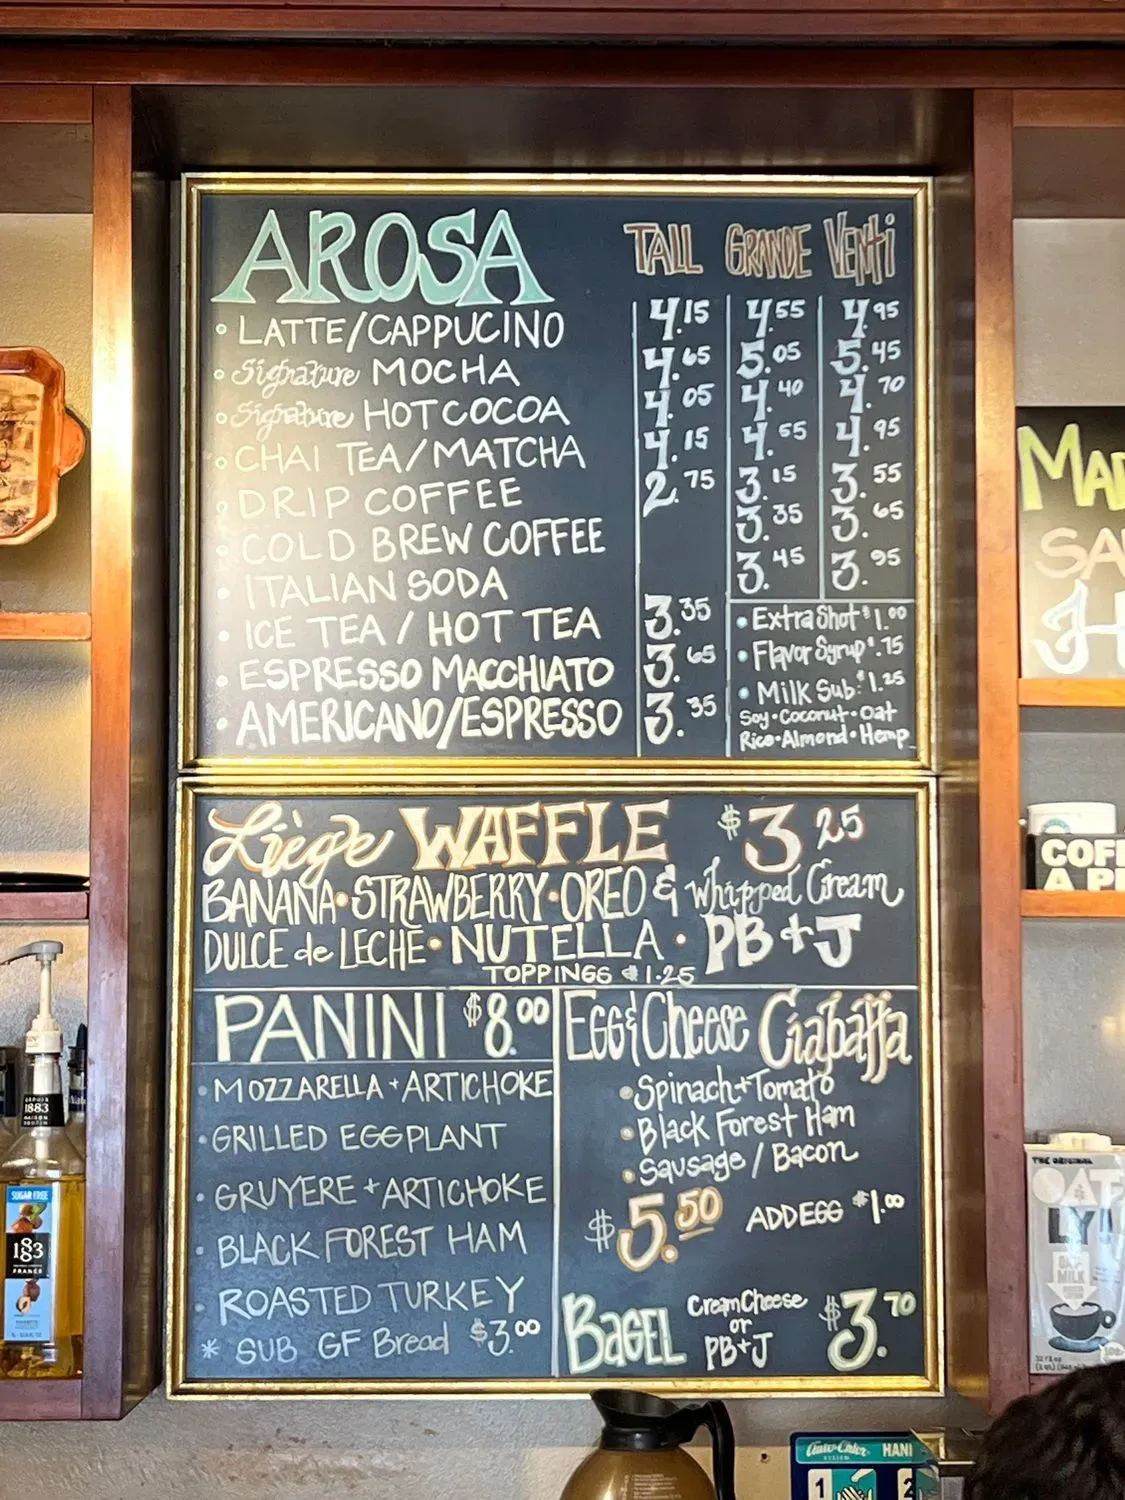 AROSA TALL GRANDE VENTI
• LATTE/CAPPUCINO 4.15 4.55 4.95
• Signature MOCHA 4.65 5.05 5.45
• Signature HOT COCOA 4.05 4.40 4.70
• CHAI TEA/MATCHA 4.15 4.55 4.95
• DRIP COFFEE 2.75 3.15 3.55
• COLD BREW COFFEE 3.35 3.65
• ITALIAN SODA 3.45 3.95
• ICE TEA / HOT TEA 3.35
• ESPRESSO MACCHIATO 3.65
• AMERICANO/ESPRESSO 3.35
• Extra Shot $1.00
• Flavor Syrup $.75
• Milk Sub: $1.25
Soy • Coconut • Oat
Rice • Almond • Hemp
Liège WAFFLE $3 25
BANANA • STRAWBERRY • OREO & Whipped Cream
DULCE de LECHE • NUTELLA • PB + J
TOPPINGS $1.25
PANINI $8.00
• MOZZARELLA + ARTICHOKE
• GRILLED EGGPLANT
• GRUYERE + ARTICHOKE
• BLACK FOREST HAM
• ROASTED TURKEY
* SUB GF Bread $3.00
EGG & Cheese Ciabatta
• Spinach + Tomato
• Black Forest Ham
• Sausage / Bacon
$5.50 ADD EGG $1.00
BAGEL Cream Cheese or PB+J $3.70
MA
SA
COF
A P
THE ORIGINAL
OAT
LY
OAT
MILK
DEPUIS
1883
SUGAR FREE
1883
FRANCE
Auto-Chlor
SYSTEM
HAN
1 2